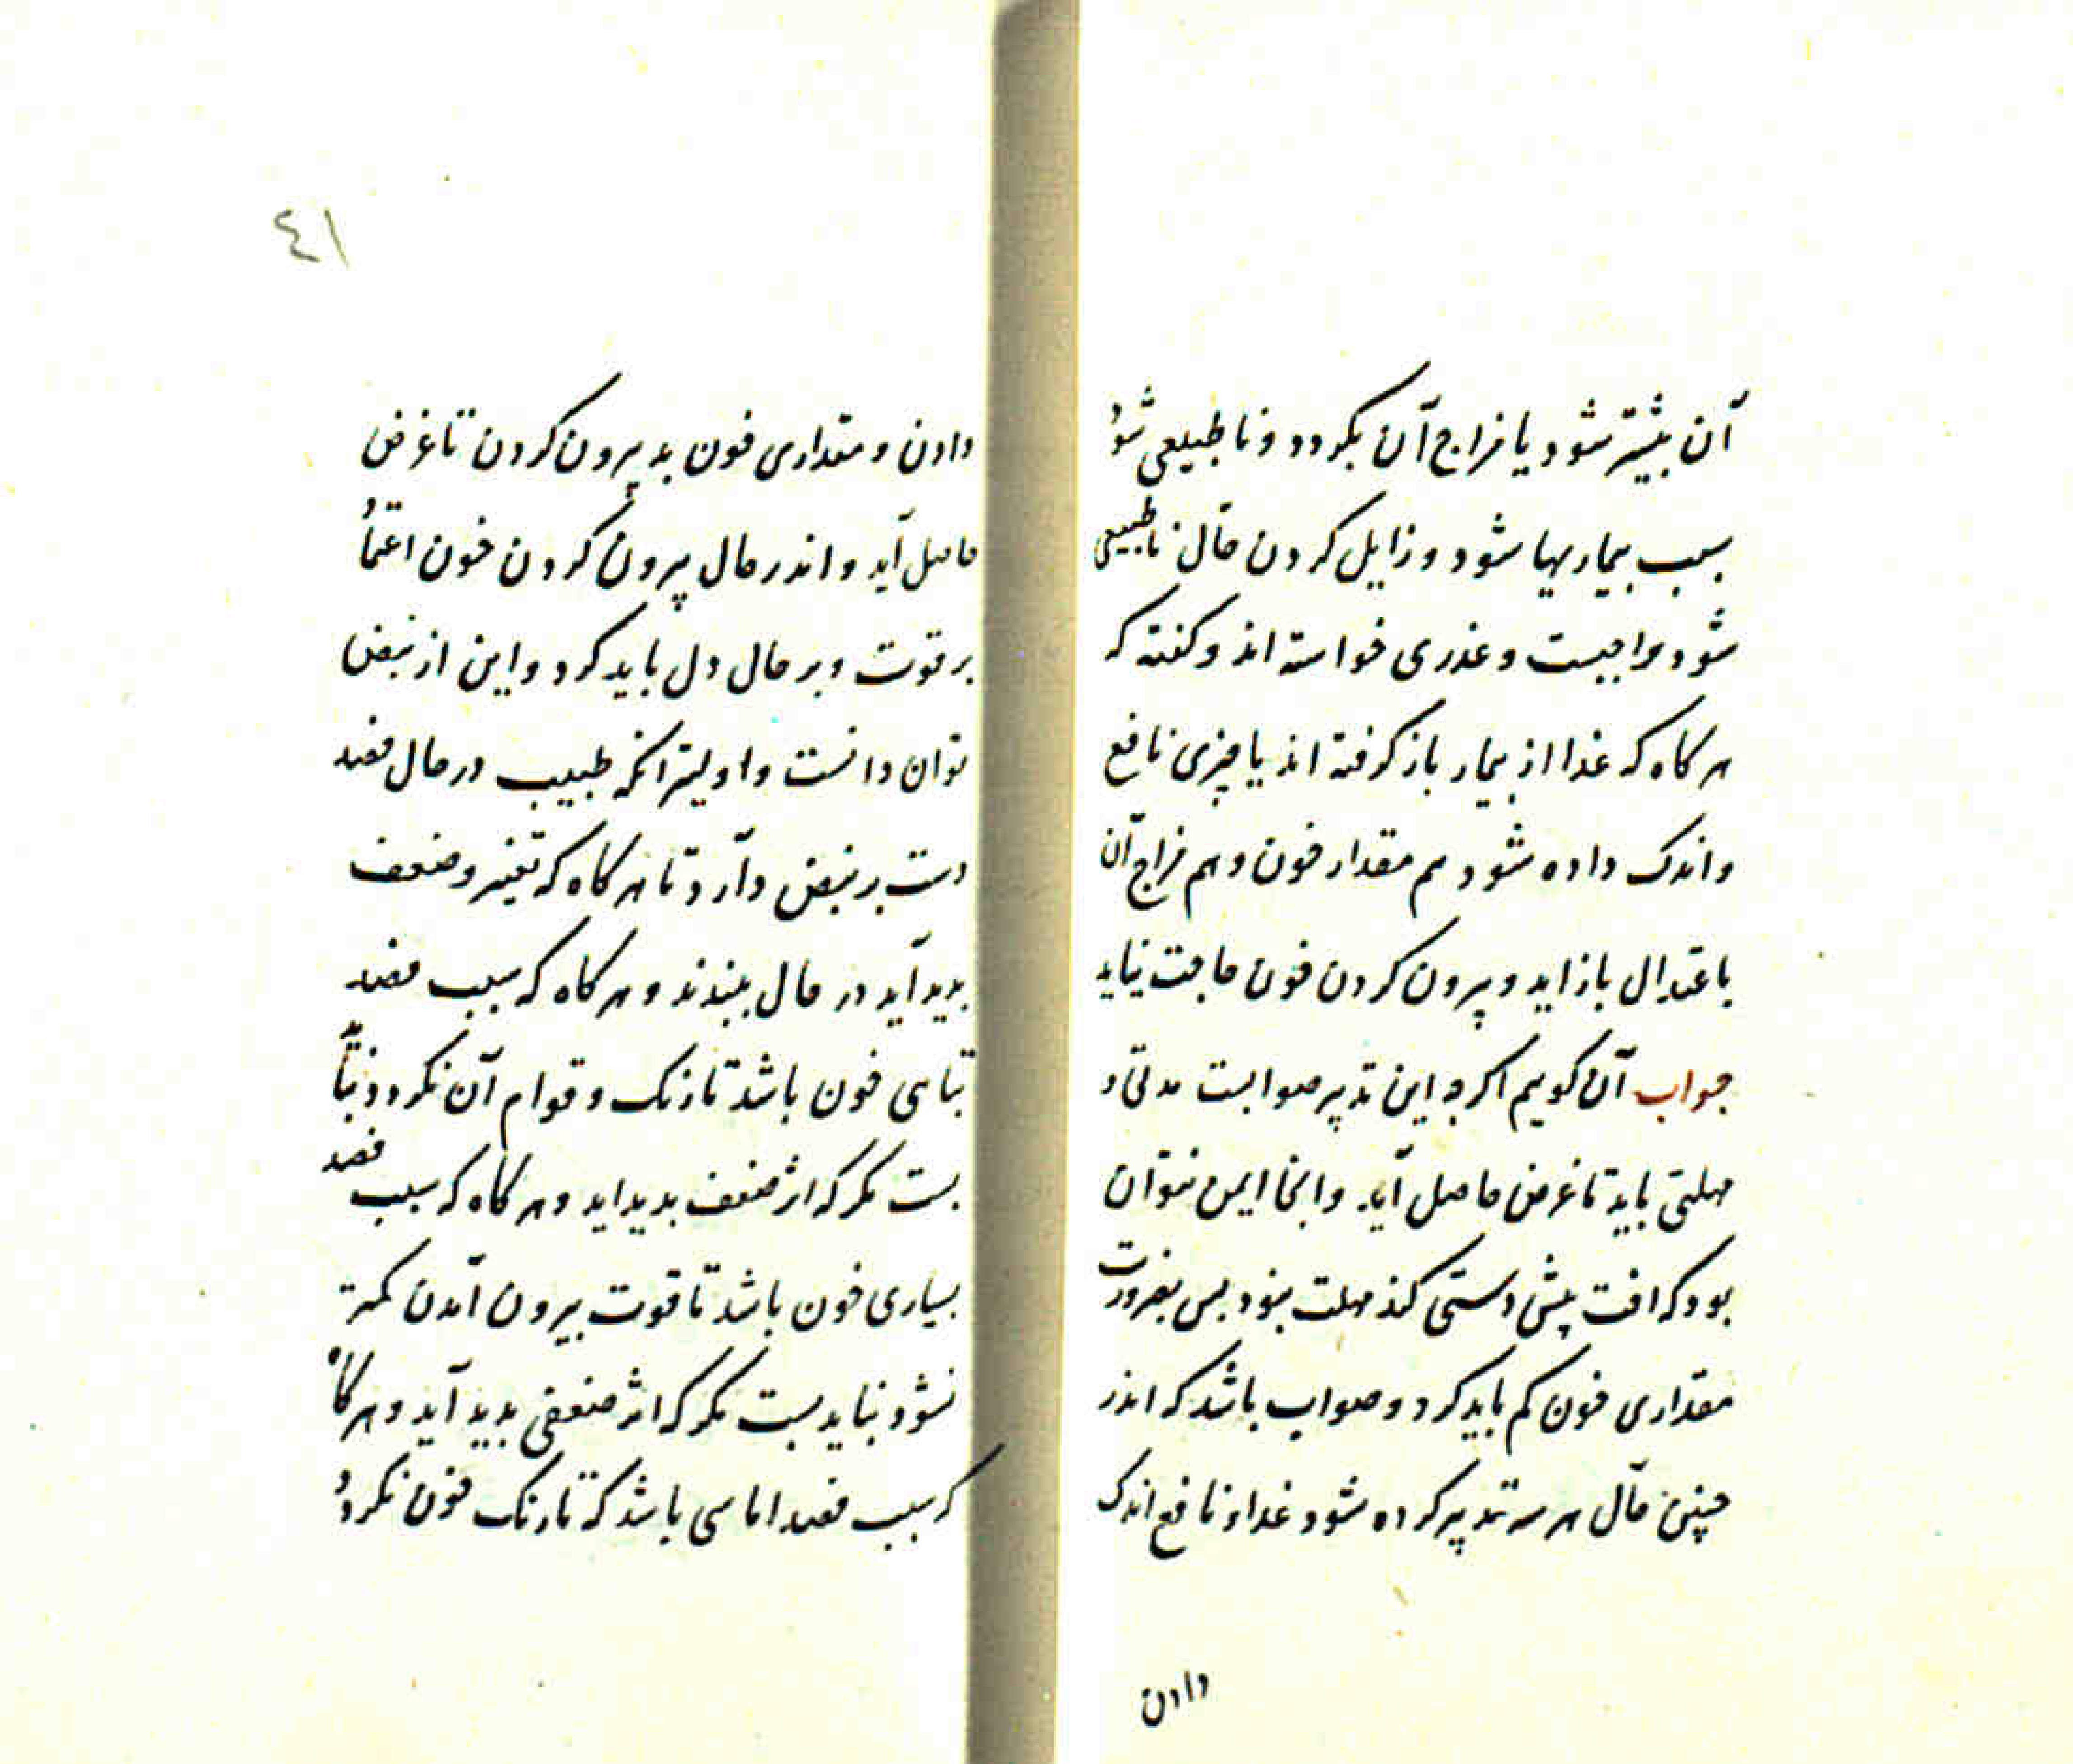 آن بیشتر شود یا مزاج آن بکردد و نا طبیعی شود
سبب بیماریها شود و زایل کردن حال نا طبیعی
شود مواجبست و عذری خواسته اند و کفته که
هر کاه که غذا از بیمار باز کرفته اند یا چیزی نافع
و اندک داده شود هم مقدار خون و هم مزاج آن
باعتدال باز اید و بیرون کردن خون حاجت نیاید
جواب آن کویم اکر چه این تدبیر صوابست مدتی و
مهلتی باید تا غرض حاصل آید و اینجا ایمن نتوان
بود که افت پیش دستی کند مهلت نبود بس بضرورت
مقداری خون کم باید کرد و صواب باشد که اندر
چنین حال هر سه تدبیر کرده شود غذاء نافع اندک
دادن
٤١
دادن و مقداری خون بد بیرون کردن تا غرض
حاصل آید و اندر حال بیرون کردن خون اعتماد
بر قوت و بر حال دل باید کرد و این از نبض
توان دانست و اولیتر انکه طبیب در حال فصد
دست بر نبض دآرد تا هر کاه که تغیر و ضعف
بدید آید در حال ببندند و هر کاه که سبب فصد
تباهی خون باشد تا رنک و قوام آن نکردد نباید
بست مکر که اثر ضعف بدید اید و هر کاه که سبب فصد
بسیاری خون باشد تا قوت بیرون آمدن کمتر
نشود نباید بست مکر که اثر ضعفی بدید آید و هر کاه
که سبب فصد اماسی باشد که تا رنک خون نکردد